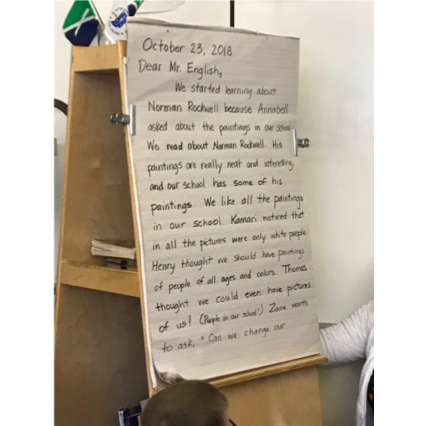 October 23, 2018
Dear Mr. English,
We started learning about
Norman Rockwell because Annabell
asked about the paintings in our school
We read about Norman Rockwell. His
paintings are really neat and interesting,
and our school has some of his
paintings. We like all the paintings
in our school. Kamari noticed that
in all the pictures were only white people.
Henry thought we should have paintings
of people of all ages and colors. Thomas
thought we could even have pictures
of us! (People in our school!) Zane wants
to ask, "Can we change our